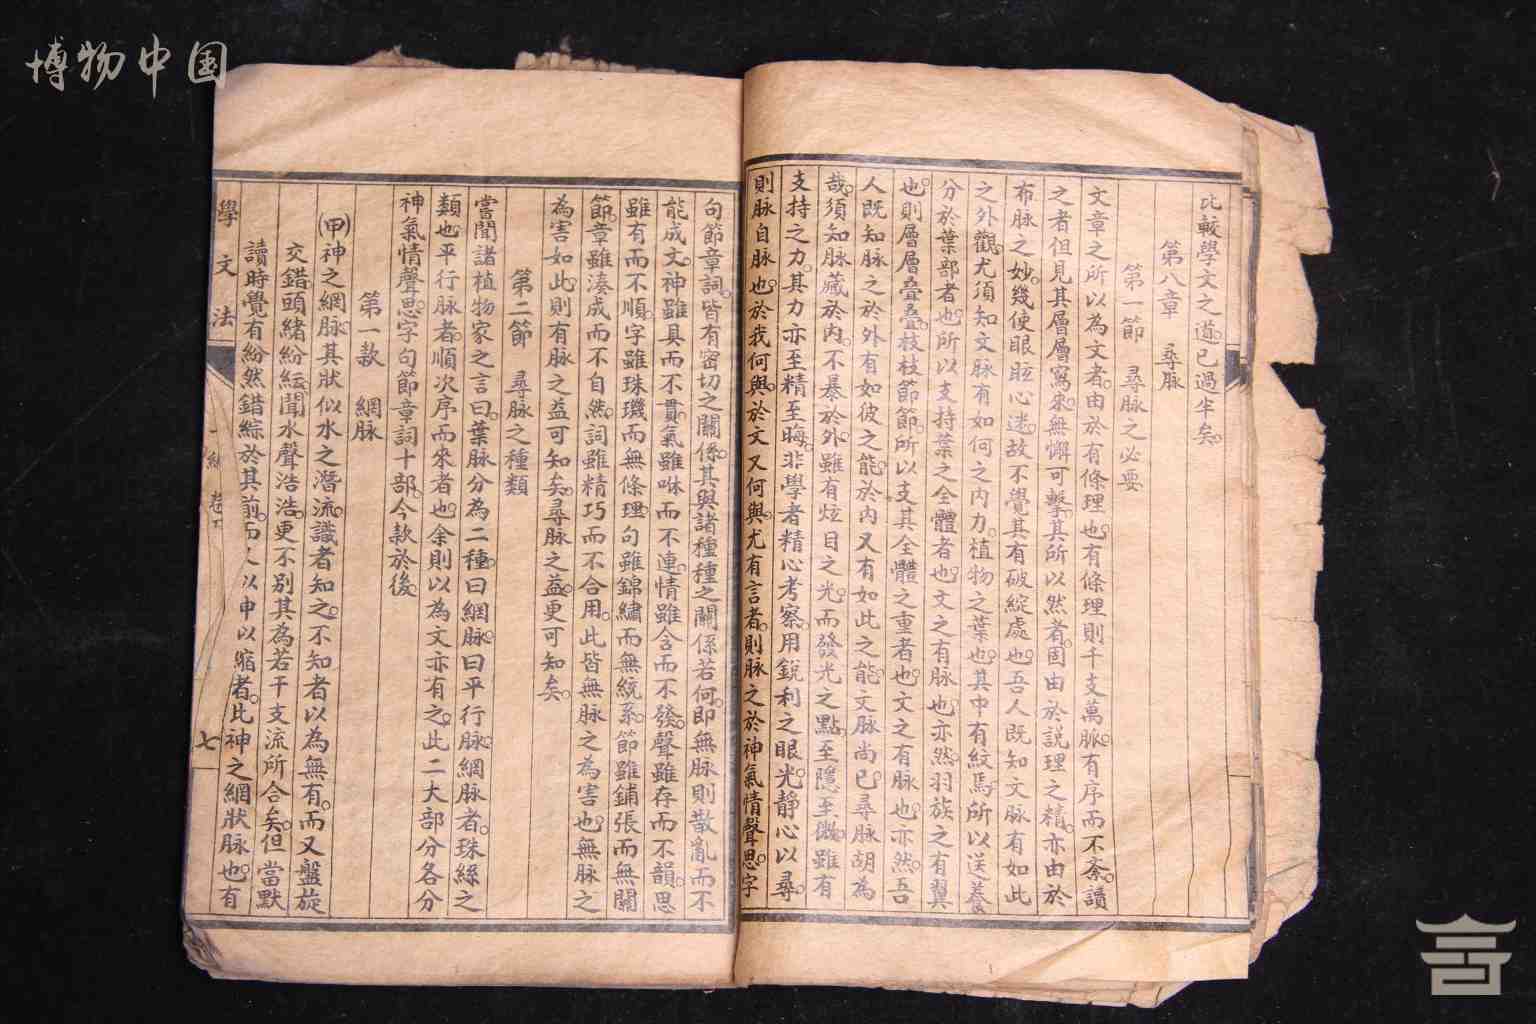 博物中国
比較學文之道。已過半矣。
第八章　尋脉
第一節　尋脉之必要
文章之所以為文者。由於有條理也。有條理則千支萬脈。有序而不紊。讀
之者但見其層層寫來。無懈可擊。其所以然者。固由於說理之精。亦由於
布脉之妙。幾使眼眩心迷。故不覺其有破綻處也。吾人既知文脈有如此
之外觀。尤須知文脉有如何之內力。植物之葉也。其中有紋焉。所以送養
分於葉部者也。所以支持葉之全體者也。文之有脉也。亦然。羽族之有翼
也。則層層叠叠。枝枝節節。所以支其全體之重者也。文之有脉也。亦然。吾
人既知脉之於外有如彼之能。於內又有如此之能。文脈尚已。尋脈胡為
哉。須知脉藏於內。不暴於外。雖有炫目之光。而發光之點。至隱至微。雖有
支持之力。其力亦至精至晦。非學者精心考察。用銳利之眼光。靜心以尋。
則脉自脉也。於我何與。於文又何與。尤有言者。則脉之於神氣情聲思。字
句節章詞。皆有密切之關係。其與諸種種之關係若何。即無脉則散亂而不
能成文。神雖具而不貫。氣雖咻而不連。情雖含而不發。聲雖存而不韻。思
雖有而不順。字雖珠璣而無條理。句雖錦繡而無統系。節雖鋪張而無關
節。章雖湊成而不自然。詞雖精巧而不合用。此皆無脉之為害也。無脉之
為害如此。則有脉之益可知矣。尋脉之益。更可知矣。
第二節　尋脉之種類
嘗聞諸植物家之言曰。葉脉分為二種。曰網脉。曰平行脉。網脉者。珠絲之
類也。平行脉者。順次序而來者也。余則以為文亦有之。此二大部分各分
神氣情聲思。字句節章詞十部。今款於後
第一款　網脉
(甲)神之網脉。其狀似水之潛流。識者知之。不知者以為無有。而又盤旋
交錯。頭緒紛紜。聞水聲浩浩。更不別其為若干支流所合矣。但當默
讀時。覺有紛然錯綜於其前。而以申以縮者。此神之網狀脉也。有
學文法
卷下
七